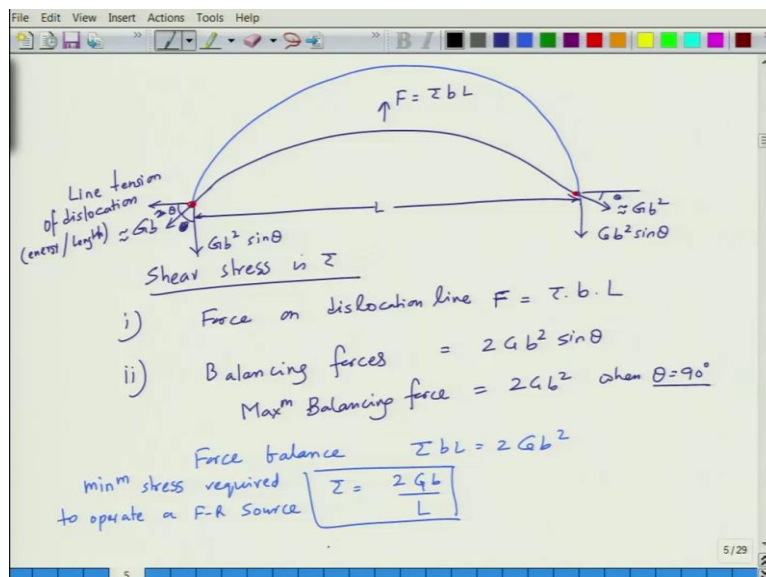 File Edit View Insert Actions Tools Help
↑ F = τ b L
Line tension
of dislocation
(energy/length) ≈ Gb²
θ
θ
L
θ
≈ Gb²
Gb² sinθ
Gb² sinθ
Shear stress is τ
i) Force on dislocation line F = τ. b. L
ii) Balancing forces = 2Gb² sinθ
Maxᵐ Balancing force = 2Gb² when θ=90°
Force balance τbL = 2Gb²
minᵐ stress required
to operate a F-R Source
τ = 2Gb / L
5/29
5